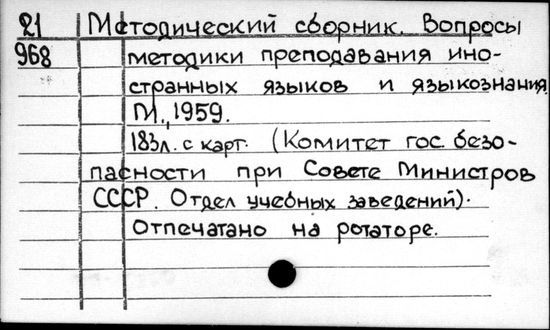 21 Методический сборник. Вопросы
968 методики преподавания ино-
странных языков и языкознания
М., 1959.
183л. с карт. (Комитет гос. безо-
пасности при Совете Министров
СССР. Отдел учебных заведений).
Отпечатано на ротаторе.